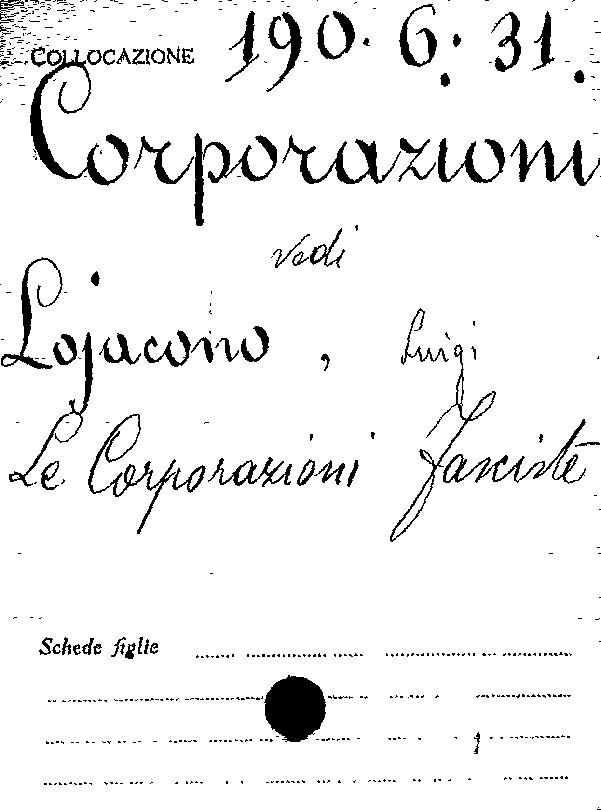 COLLOCAZIONE 190.6.31.
Corporazioni
vedi
Lojacono, Luigi
Le Corporazioni Fasciste
Schede figlie
1